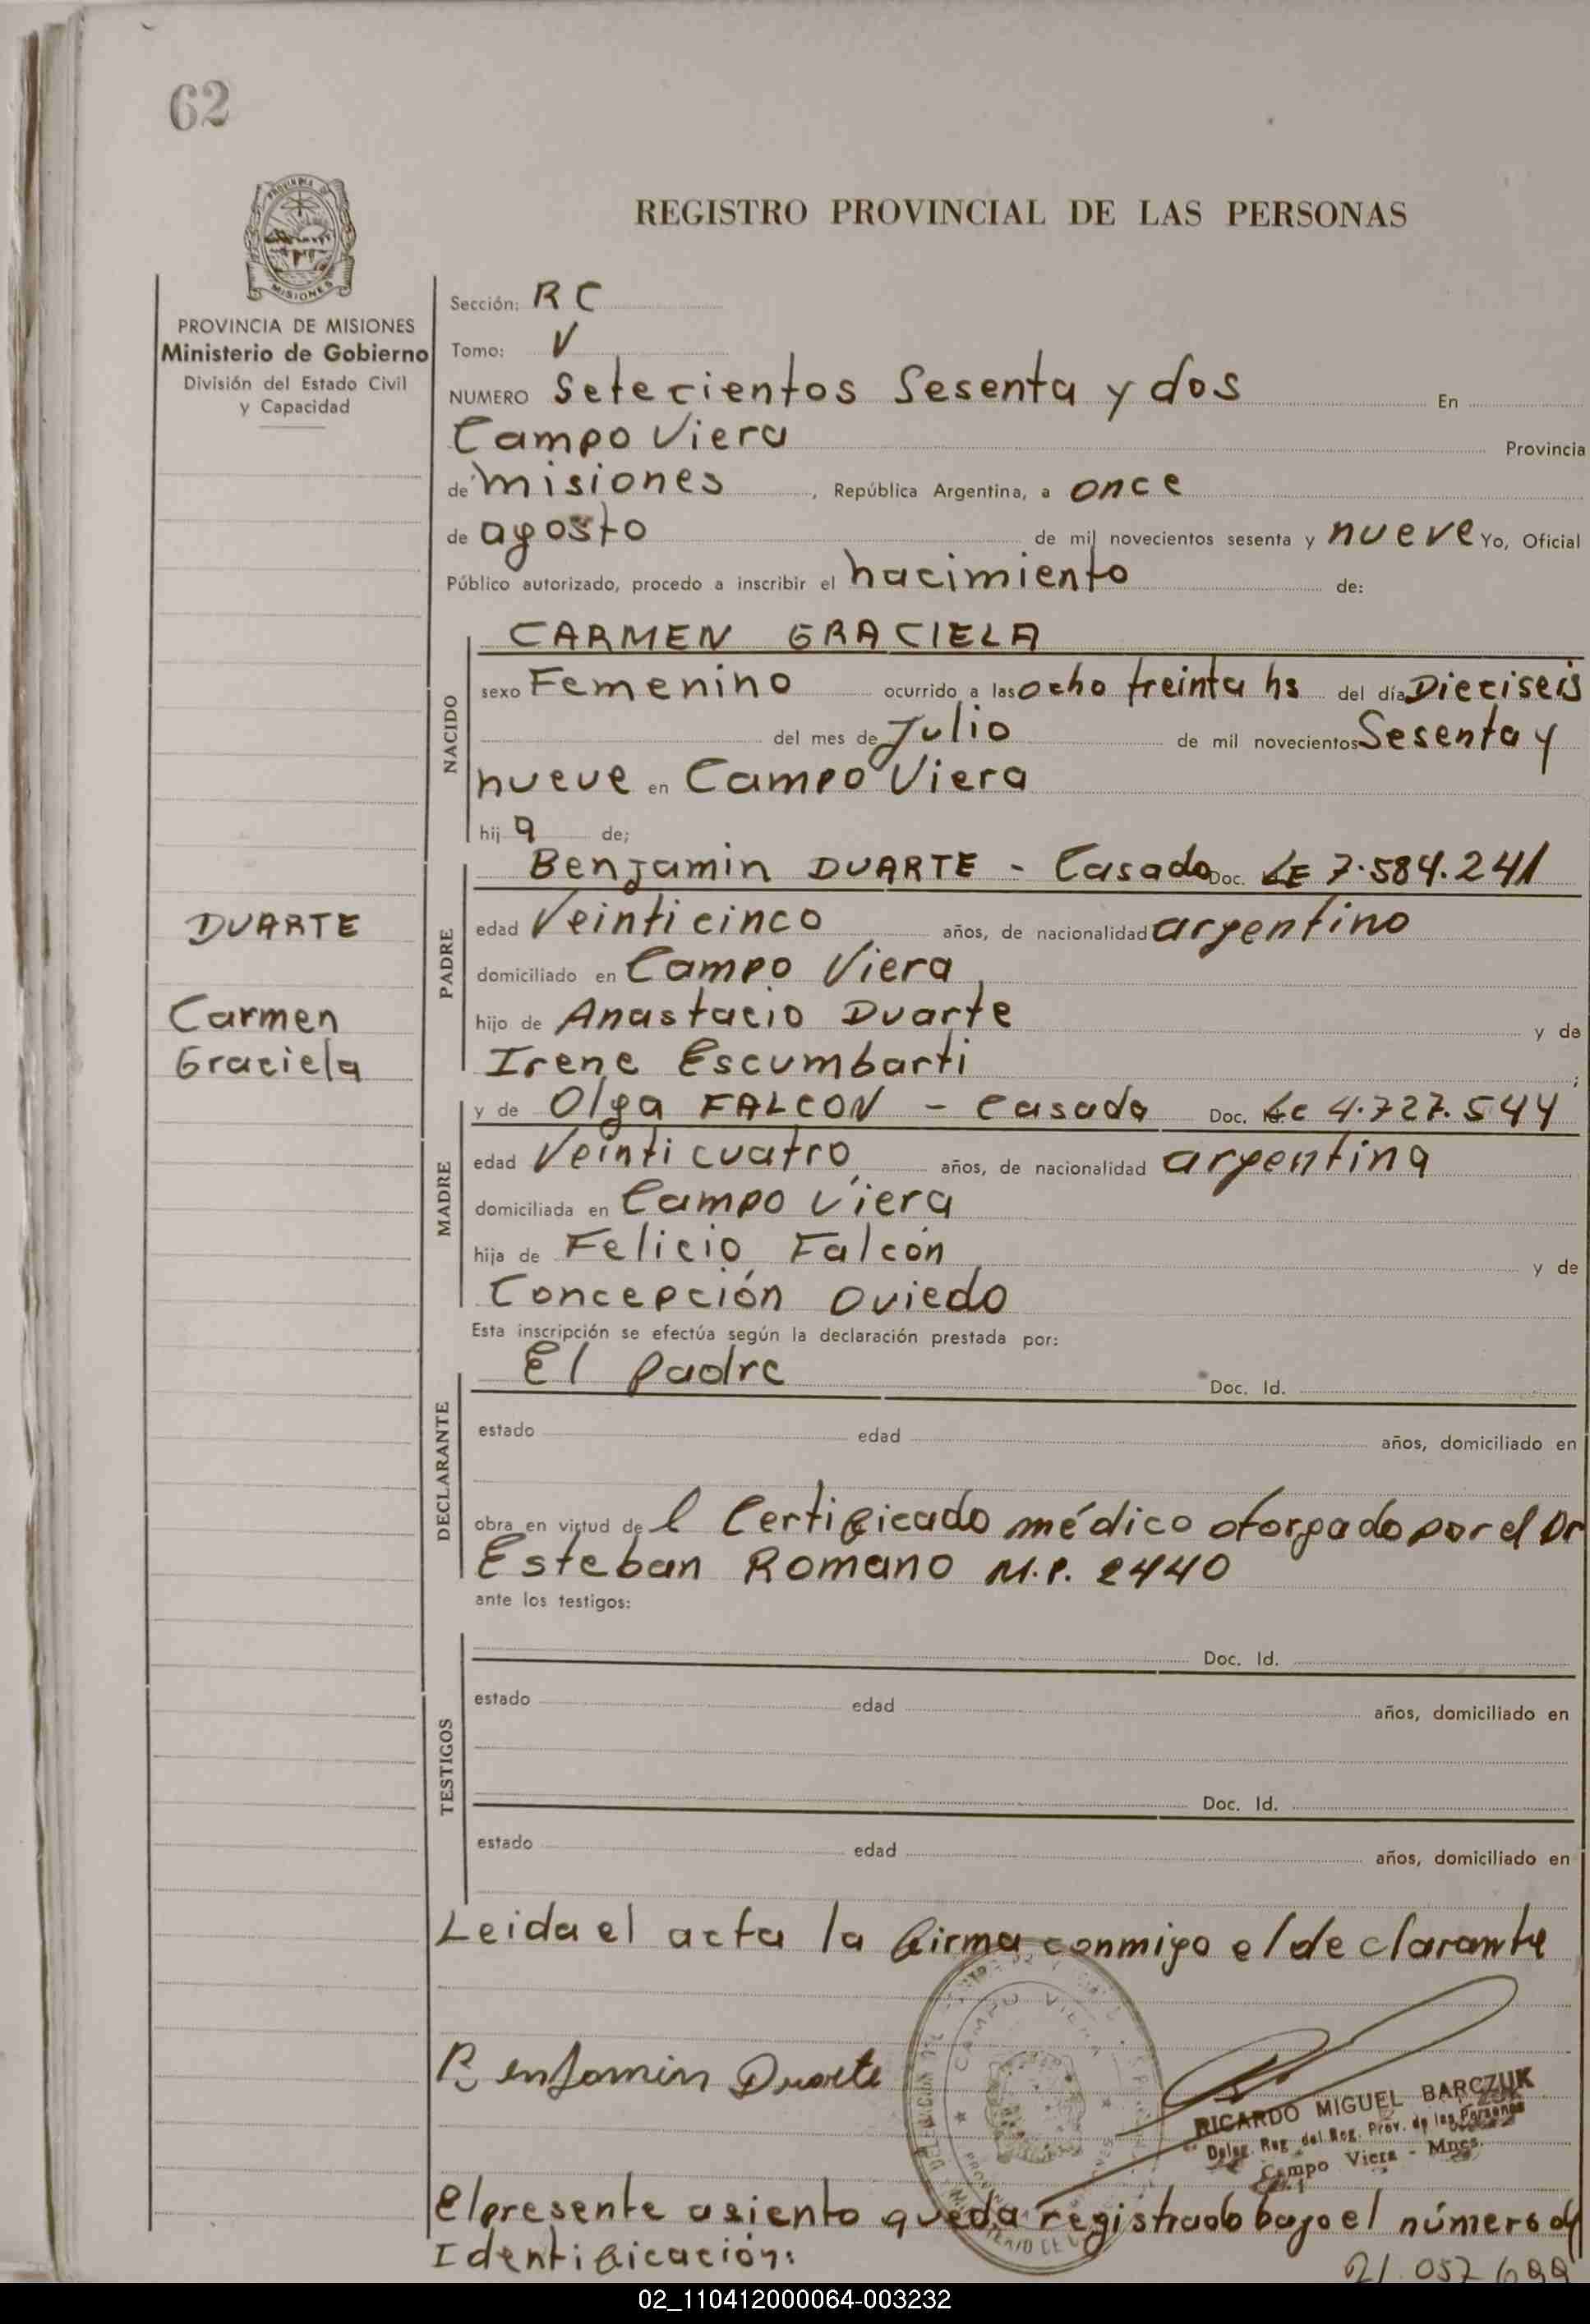 62
REGISTRO PROVINCIAL DE LAS PERSONAS
MISIONES
PROVINCIA DE MISIONES
Ministerio de Gobierno
División del Estado Civil
y Capacidad
Sección: R C
Tomo: V
NUMERO Setecientos Sesenta y dos En
Campo Viera Provincia
de misiones, República Argentina, a once
de agosto de mil novecientos sesenta y nueve Yo, Oficial
Público autorizado, procedo a inscribir el nacimiento de:
NACIDO
CARMEN GRACIELA
sexo Femenino ocurrido a las ocho treinta hs del día Dieciseis
del mes de Julio de mil novecientos Sesenta y
nueve en Campo Viera
hij a de;
PADRE
Benjamin DUARTE - Casado Doc. LE 7.584.241
edad Veinticinco años, de nacionalidad argentino
domiciliado en Campo Viera
hijo de Anastacio Duarte y de
Irene Escumbarti ;
DUARTE
Carmen
Graciela
MADRE
y de Olga FALCON - Casada Doc. Lc 4.727.544
edad Veinticuatro años, de nacionalidad argentina
domiciliada en Campo Viera
hija de Felicio Falcón y de
Concepción Oviedo
Esta inscripción se efectúa según la declaración prestada por:
DECLARANTE
El padre Doc. Id.
estado edad años, domiciliado en
obra en virtud de l Certificado médico otorgado por el Dr
Esteban Romano M.P. 2440
ante los testigos:
TESTIGOS
Doc. Id.
estado edad años, domiciliado en
Doc. Id.
estado edad años, domiciliado en
Leida el acta la firma conmigo el declarante
CAMPO VIERA
Benjamin Duarte
RICARDO MIGUEL BARCZUK
Deleg. Reg. del Reg. Prov. de las Personas
Campo Viera - Mnes.
El presente asiento queda registrado bajo el número de
Identificación:
21.057
02_110412000064-003232